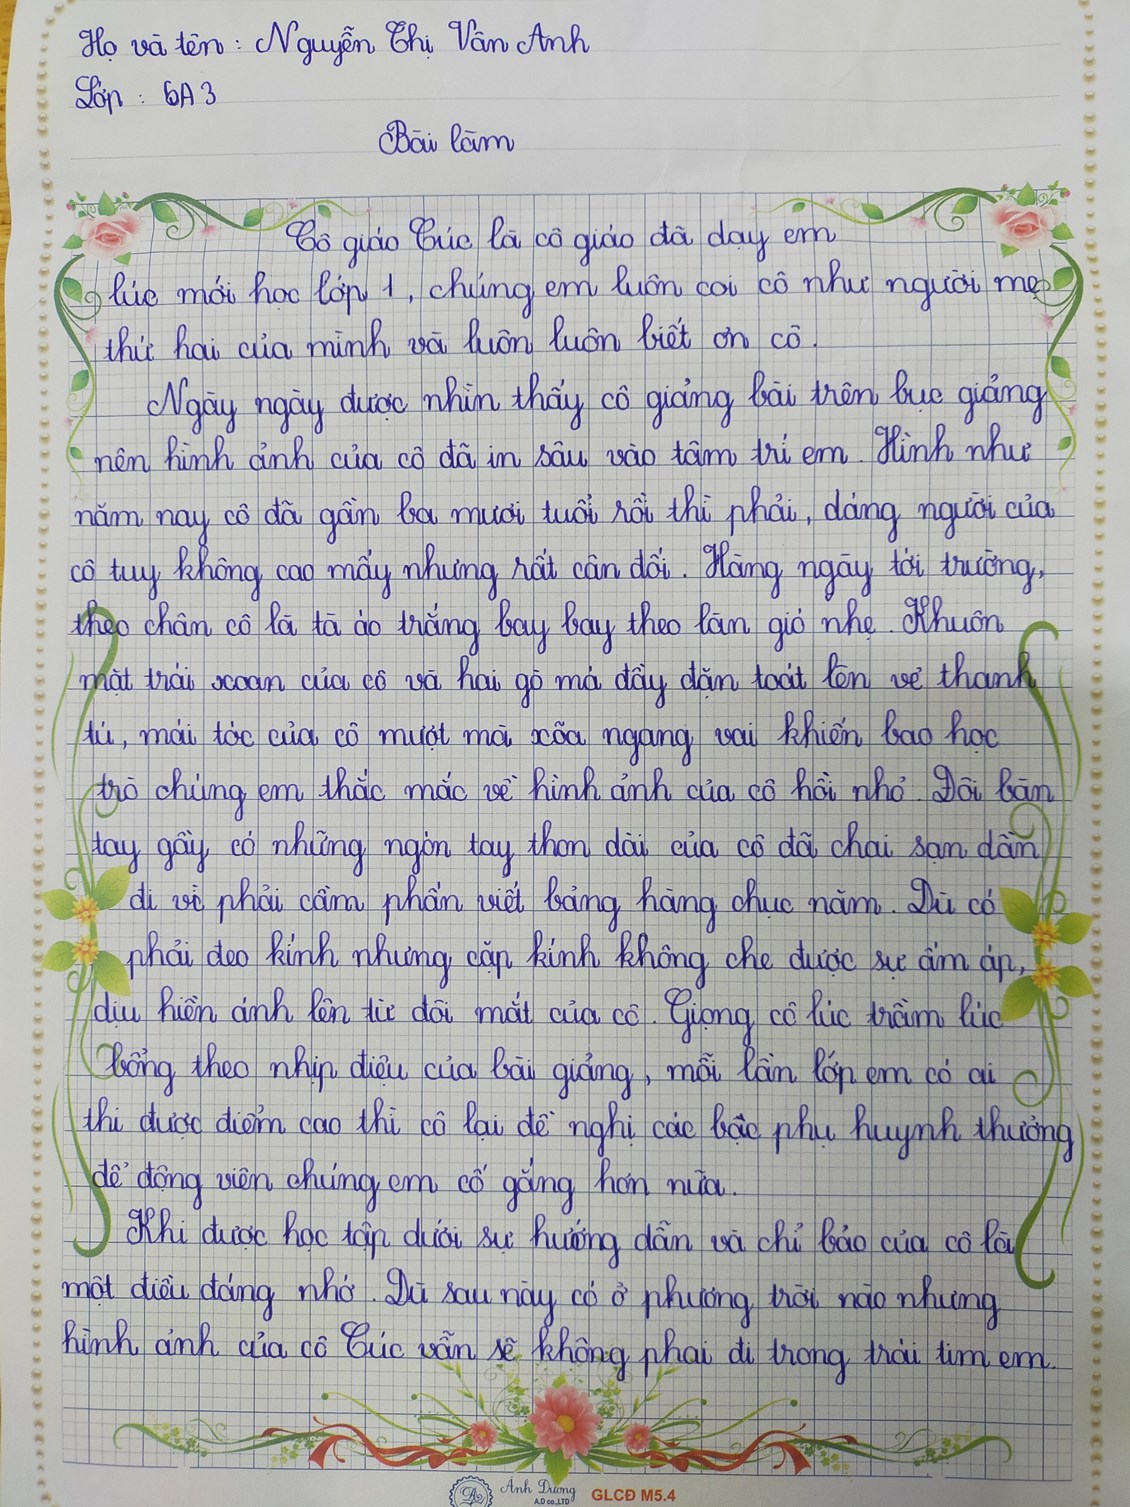 Họ và tên: Nguyễn Thị Vân Anh
Lớp: 6A3
Bài làm
Cô giáo Cúc là cô giáo đã dạy em
lúc mới học lớp 1, chúng em luôn coi cô như người mẹ
thứ hai của mình và luôn luôn biết ơn cô.
Ngày ngày được nhìn thấy cô giảng bài trên bục giảng
nên hình ảnh của cô đã in sâu vào tâm trí em. Hình như
năm nay cô đã gần ba mươi tuổi rồi thì phải, dáng người của
cô tuy không cao mấy nhưng rất cân đối. Hàng ngày tới trường,
theo chân cô là tà áo trắng bay bay theo làn gió nhẹ. Khuôn
mặt trái xoan của cô và hai gò má đầy đặn toát lên vẻ thanh
tú, mái tóc của cô mượt mà xõa ngang vai khiến bao học
trò chúng em thắc mắc về hình ảnh của cô hồi nhỏ. Đôi bàn
tay gầy có những ngón tay thon dài của cô đã chai sạn dần
đi vì phải cầm phấn viết bảng hàng chục năm. Dù có
phải đeo kính nhưng cặp kính không che được sự ấm áp,
dịu hiền ánh lên từ đôi mắt của cô. Giọng cô lúc trầm lúc
bổng theo nhịp điệu của bài giảng, mỗi lần lớp em có ai
thi được điểm cao thì cô lại đề nghị các bậc phụ huynh thưởng
để động viên chúng em cố gắng hơn nữa.
Khi được học tập dưới sự hướng dẫn và chỉ bảo của cô là
một điều đáng nhớ. Dù sau này có ở phương trời nào nhưng
hình ảnh của cô Cúc vẫn sẽ không phai đi trong trái tim em.
Ánh Dương
A.D co.,LTD
GLCĐ M5.4